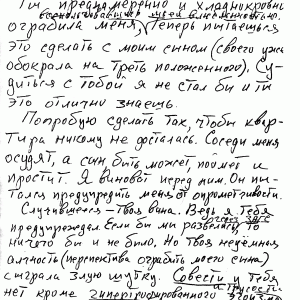 Ты преднамеренно и хладнокровно
ограбила меня, Теперь пытаешься
это сделать с моим сыном (своего уже
обокрала на треть положенного). Су-
диться с тобой я не стал бы и ты
это отлично знаешь.
Попробую сделать так, чтобы квар-
тира никому не досталась. Соседи меня
осудят, а сын быть может, поймет и
простит. Я виноват перед ним. Он пы-
тался предупредить меня от опрометчивости.
Случившееся – Твоя вина. Ведь я Тебя
предупреждал. Если бы мы развелись, то
ничего бы и не было. Но Твоя неуёмная
алчность (перспектива ограбить моего сына)
сыграла злую шутку. Совести у Тебя
и трусости
нет кроме гипертрофированного эгоизма